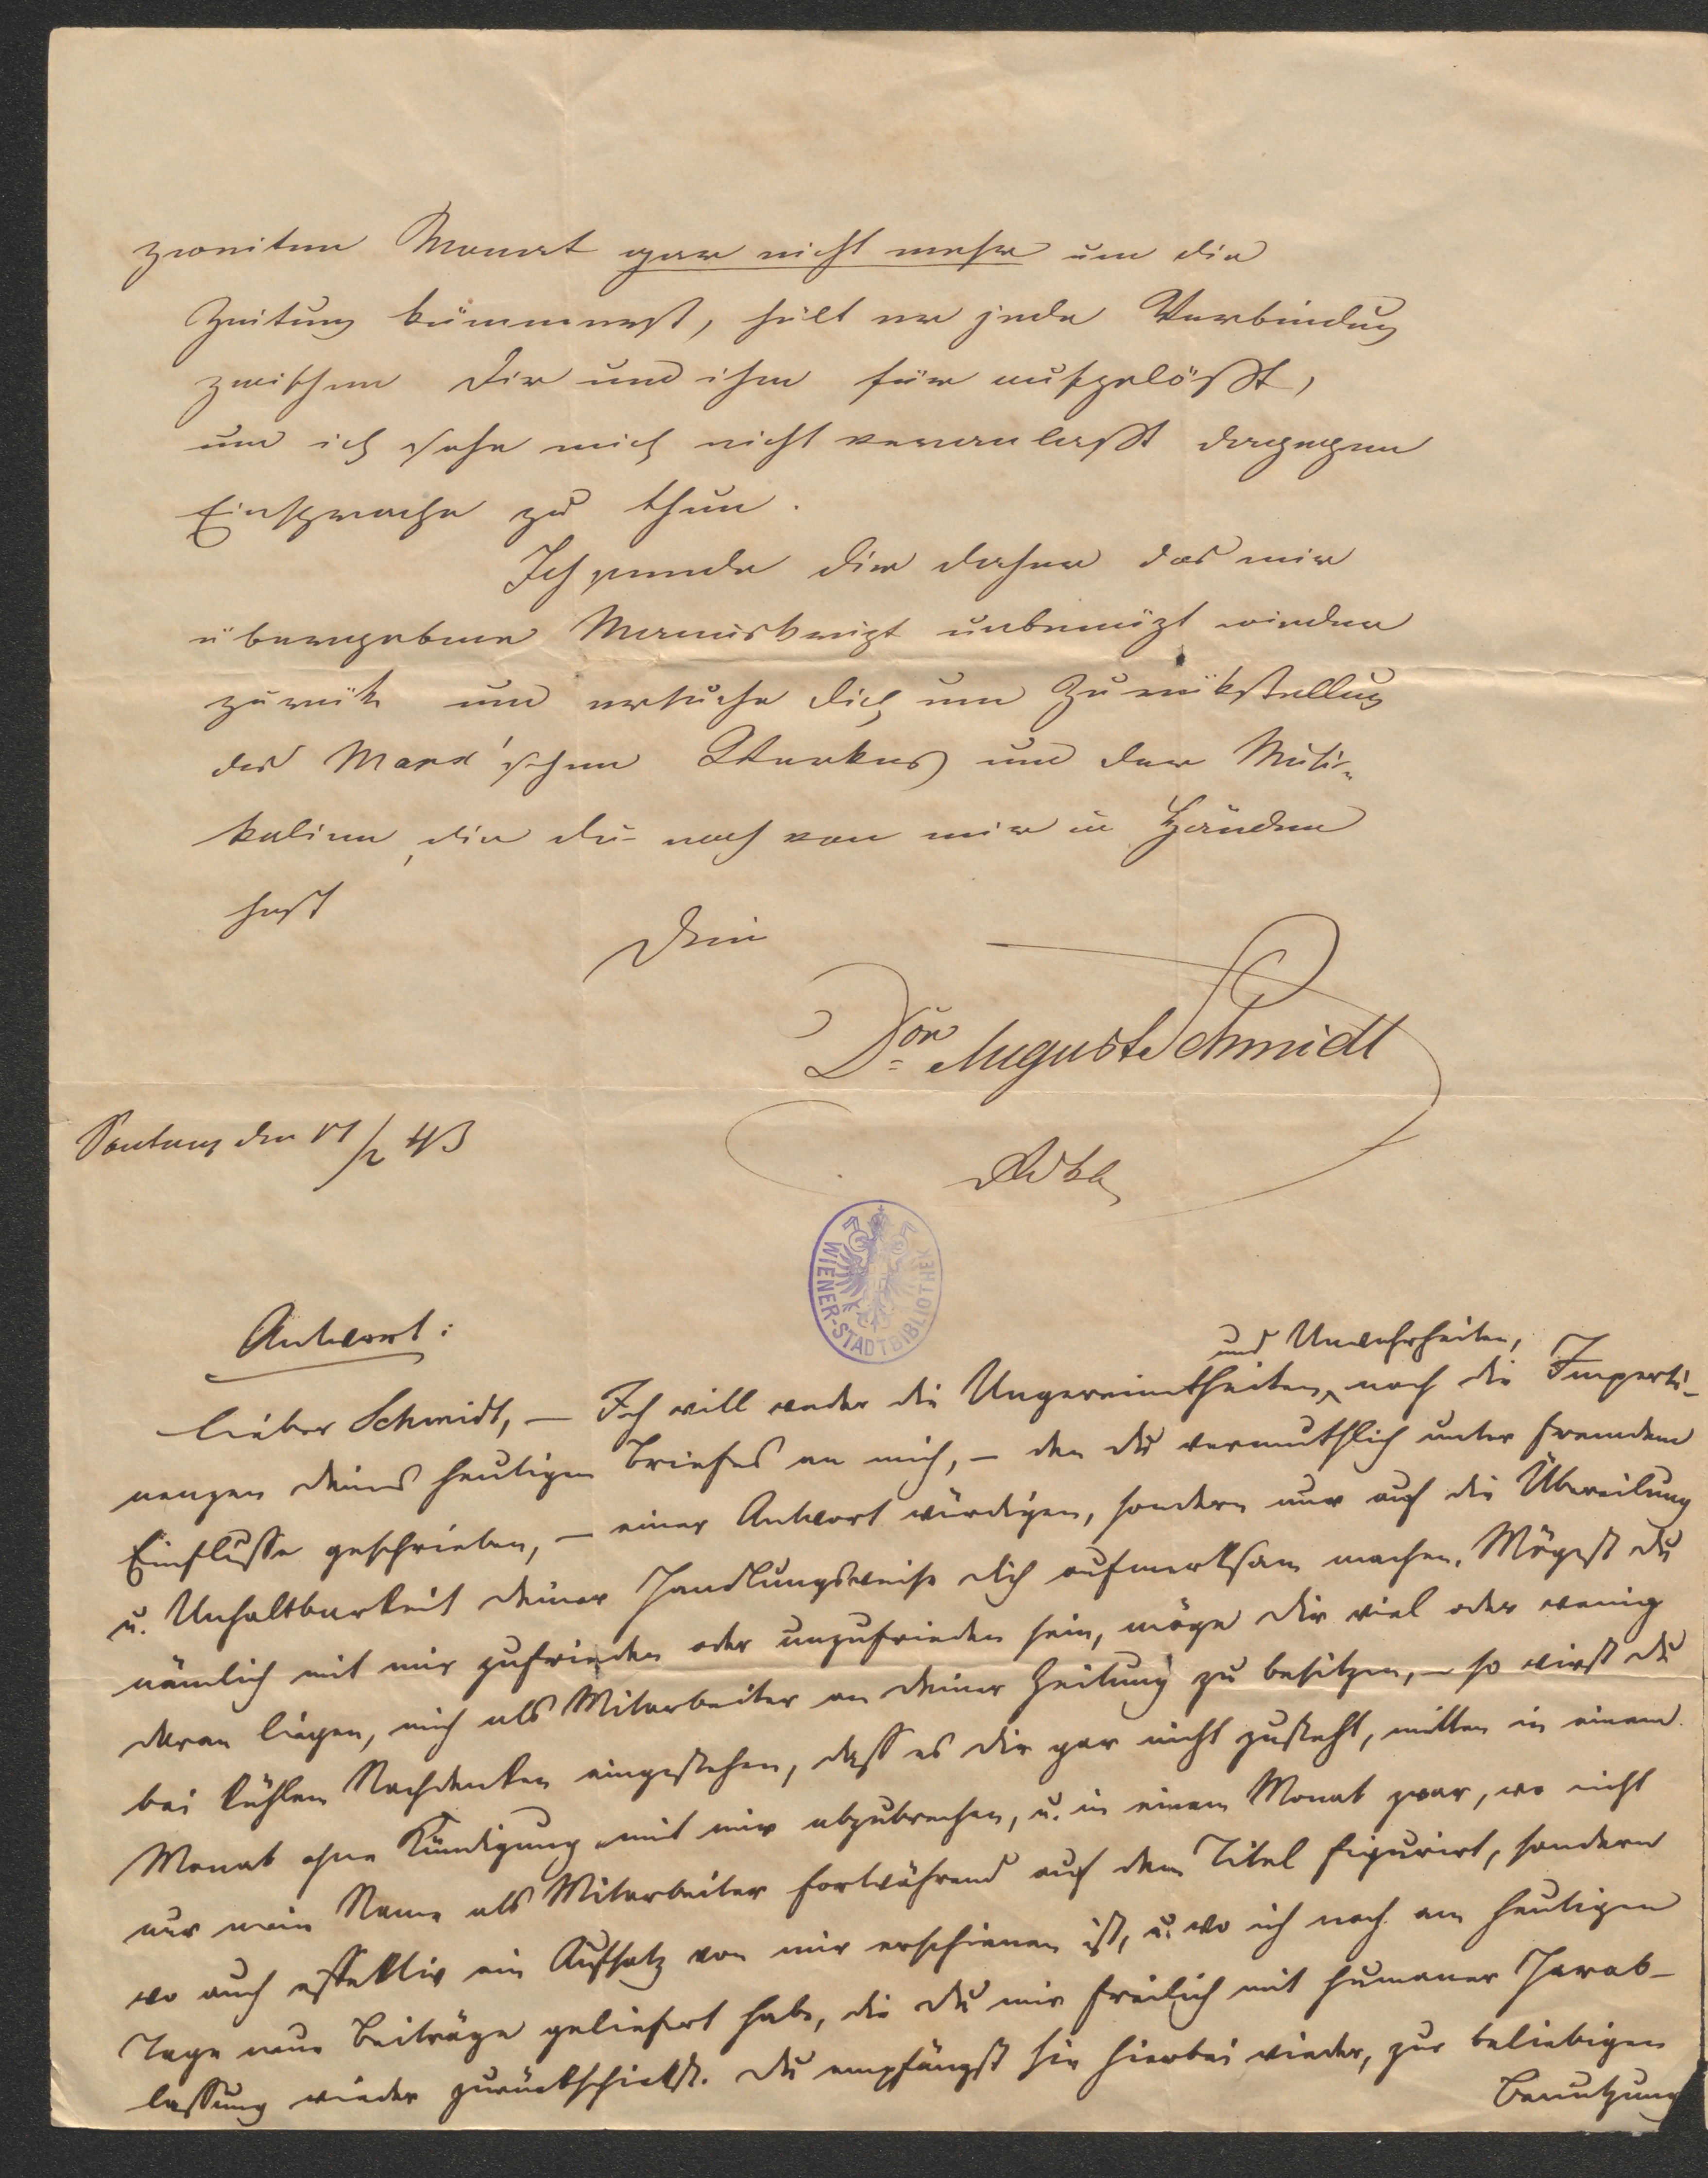 zweiten Monat gar nicht mehr um die
Zeitung kümmerst, hält er jede Verbindung
zwischen Dir und ihm für aufgelößt,
und ich sehe mich nicht veranlaßt dagegen
Einsprache zu thun.
Ich sende Dir daher das mir
übergebene Manuskript unbenüzt wieder
zurük und ersuche Dich um Zurükstellung
des Marx'schen Werkes und der Musi-
kalien, die Du noch von mir in Händen
hast
Dein
Dor August Schmidt
Sontag den 19/2 43
WIENER-STADTBIBLIOTHEK
Antwort:
und Unwahrheiten,
Lieber Schmidt, – Ich will weder die Ungereimtheiten, noch die Imperti-
nenzen deines heutigen Briefes an mich, – den du vermuthlich unter fremdem
Einflusse geschrieben, – einer Antwort würdigen, sondern nur auf die Übereilung
u. Unhaltbarkeit deiner Handlungsweise dich aufmerksam machen. Mögest du
nämlich mit mir zufrieden oder unzufrieden sein, möge dir viel oder wenig
daran liegen, mich als Mitarbeiter an deiner Zeitung zu besitzen, – so wirst du
bei kühlem Nachdenken eingestehen, dass es dir gar nicht zusteht, mitten in einem
Monat ohne Kündigung mit mir abzubrechen, u. in einem Monat zwar, wo nicht
nur mein Name als Mitarbeiter fortwährend auf dem Titel figurirt, sondern
wo auch effektiv ein Aufsatz von mir erschienen ist, u. wo ich noch am heutigen
Tage neue Beiträge geliefert habe, die du mir freilich mit humaner Herab-
lassung wieder zurückschickst. Du empfängst sie hierbei wieder, zur beliebigen
Benutzung